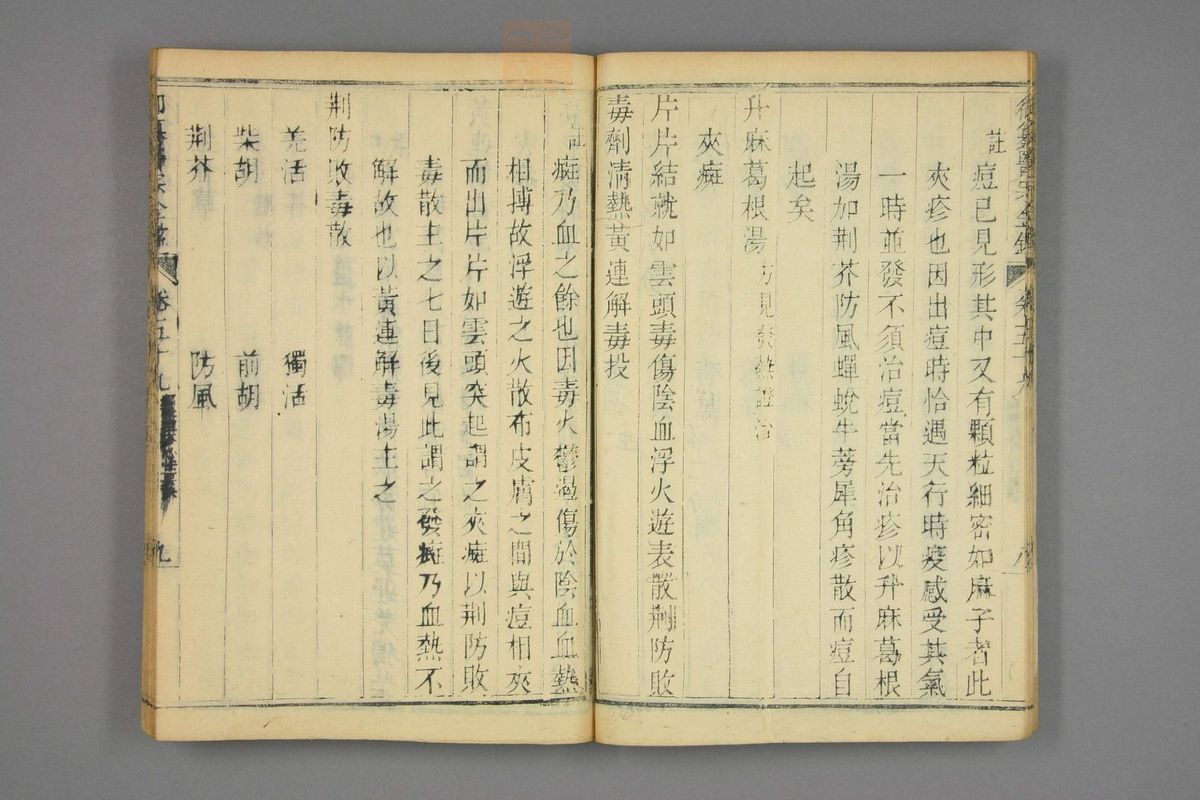 註 痘已見形其中又有顆粒細密如麻子者此
夾疹也因出痘時恰遇天行時疫感受其氣
一時並發不須治痘當先治疹以升麻葛根
湯加荆芥防風蟬蛻牛蒡犀角疹散而痘自
起矣
升麻葛根湯 方見發熱證治
夾㾦
片片結就如雲頭毒傷陰血浮火遊表散荆防敗
毒劑清熱黃連解毒投
註 㾦乃血之餘也因毒火鬱遏傷於陰血血熱
相搏故浮遊之火散布皮膚之間與痘相夾
而出片片如雲頭突起謂之夾㾦以荆防敗
毒散主之七日後見此謂之發㾦乃血熱不
解故也以黃連解毒湯主之
荆防敗毒散
羌活 獨活
柴胡 前胡
荆芥 防風
卷五十九 九